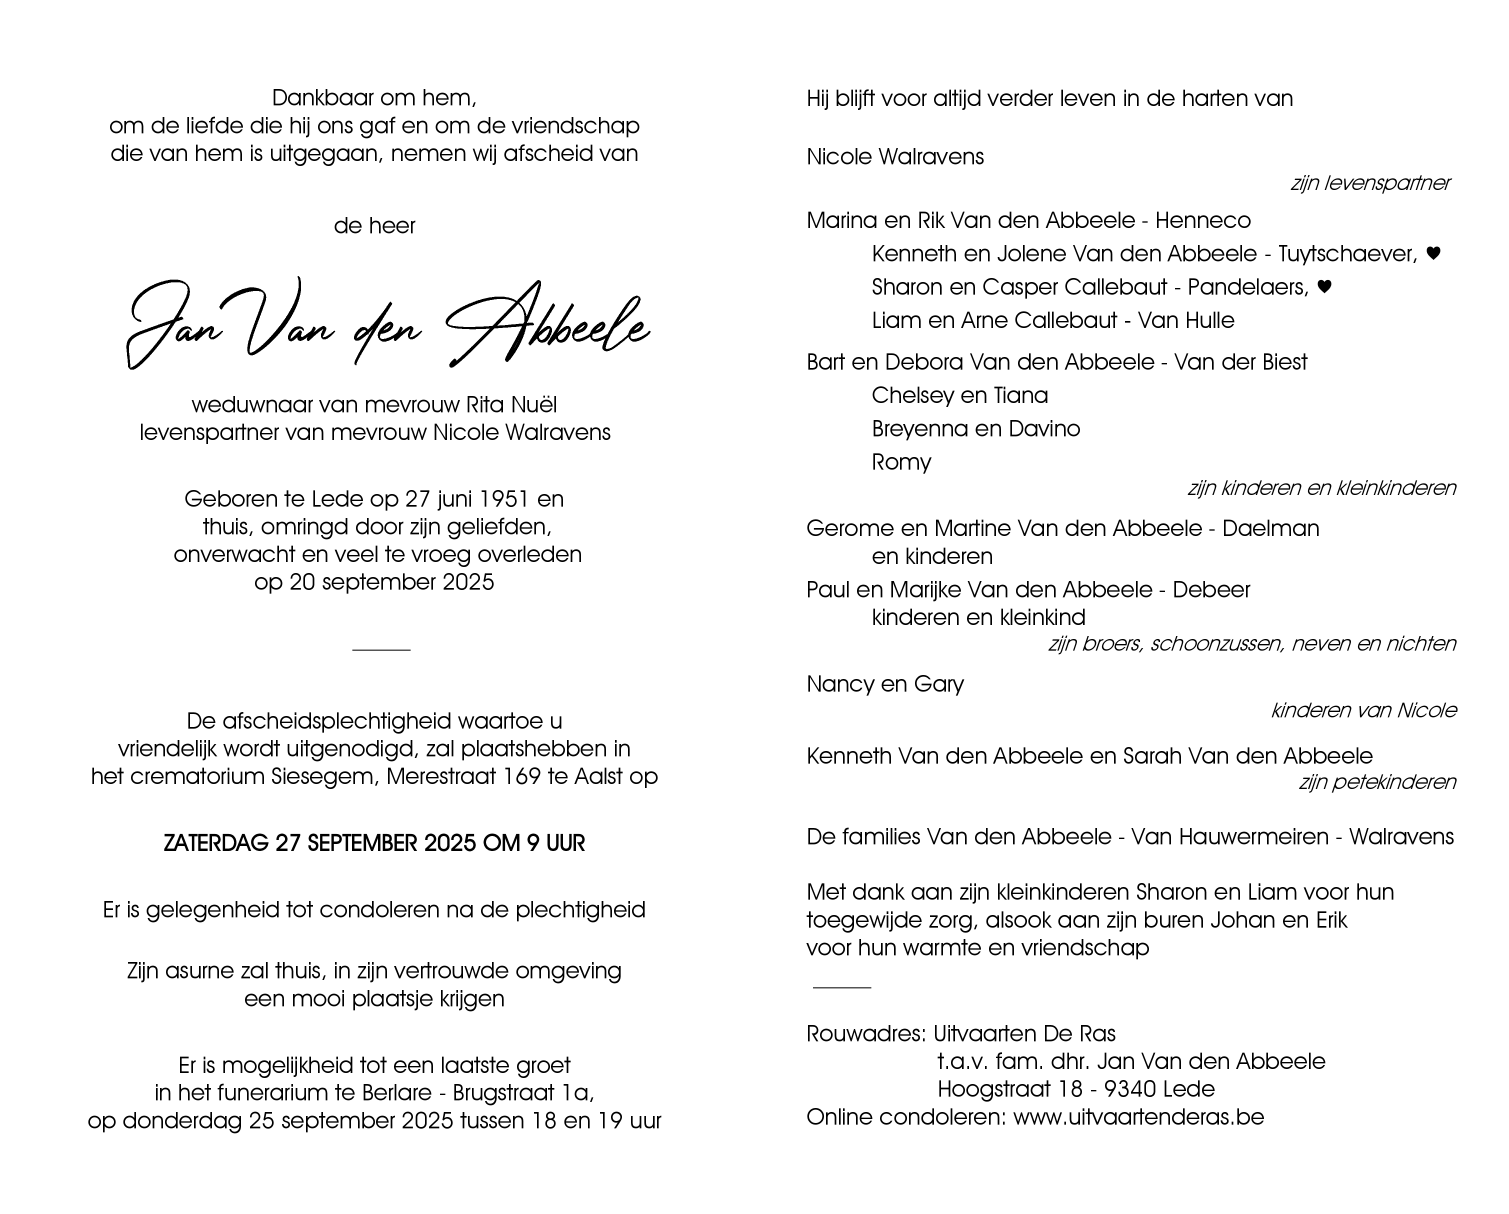 Dankbaar om hem,
om de liefde die hij ons gaf en om de vriendschap
die van hem is uitgegaan, nemen wij afscheid van
de heer
Jan Van den Abbeele
weduwnaar van mevrouw Rita Nuël
levenspartner van mevrouw Nicole Walravens
Geboren te Lede op 27 juni 1951 en
thuis, omringd door zijn geliefden,
onverwacht en veel te vroeg overleden
op 20 september 2025
De afscheidsplechtigheid waartoe u
vriendelijk wordt uitgenodigd, zal plaatshebben in
het crematorium Siesegem, Merestraat 169 te Aalst op
ZATERDAG 27 SEPTEMBER 2025 OM 9 UUR
Er is gelegenheid tot condoleren na de plechtigheid
Zijn asurne zal thuis, in zijn vertrouwde omgeving
een mooi plaatsje krijgen
Er is mogelijkheid tot een laatste groet
in het funerarium te Berlare - Brugstraat 1a,
op donderdag 25 september 2025 tussen 18 en 19 uur
Hij blijft voor altijd verder leven in de harten van
Nicole Walravens
zijn levenspartner
Marina en Rik Van den Abbeele - Henneco
Kenneth en Jolene Van den Abbeele - Tuytschaever, ♥
Sharon en Casper Callebaut - Pandelaers, ♥
Liam en Arne Callebaut - Van Hulle
Bart en Debora Van den Abbeele - Van der Biest
Chelsey en Tiana
Breyenna en Davino
Romy
zijn kinderen en kleinkinderen
Gerome en Martine Van den Abbeele - Daelman
en kinderen
Paul en Marijke Van den Abbeele - Debeer
kinderen en kleinkind
zijn broers, schoonzussen, neven en nichten
Nancy en Gary
kinderen van Nicole
Kenneth Van den Abbeele en Sarah Van den Abbeele
zijn petekinderen
De families Van den Abbeele - Van Hauwermeiren - Walravens
Met dank aan zijn kleinkinderen Sharon en Liam voor hun
toegewijde zorg, alsook aan zijn buren Johan en Erik
voor hun warmte en vriendschap
Rouwadres: Uitvaarten De Ras
t.a.v. fam. dhr. Jan Van den Abbeele
Hoogstraat 18 - 9340 Lede
Online condoleren: www.uitvaartenderas.be